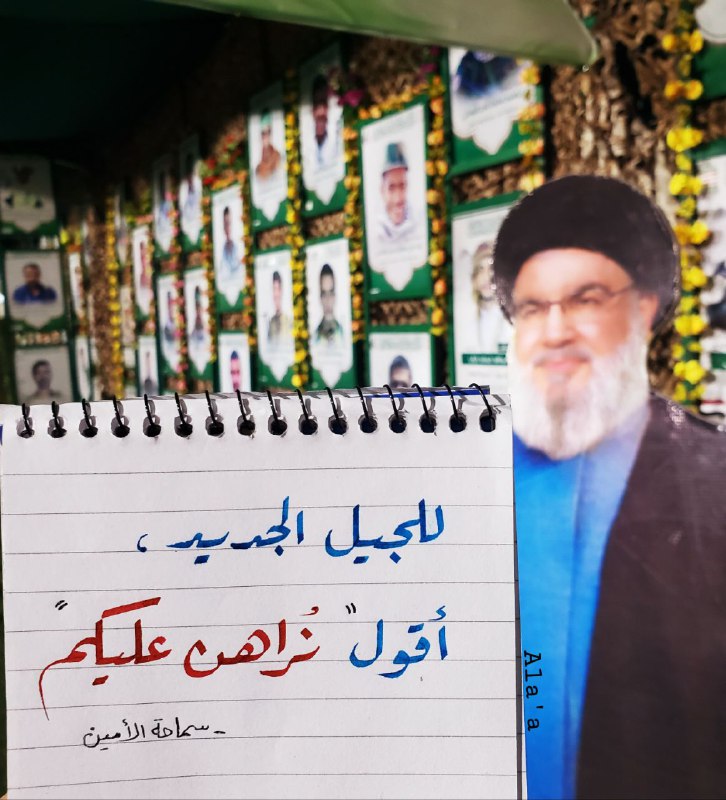 للجيل الجديد،
أقول "نُراهن عليكم"
- سماحة الأمين
Ala'a